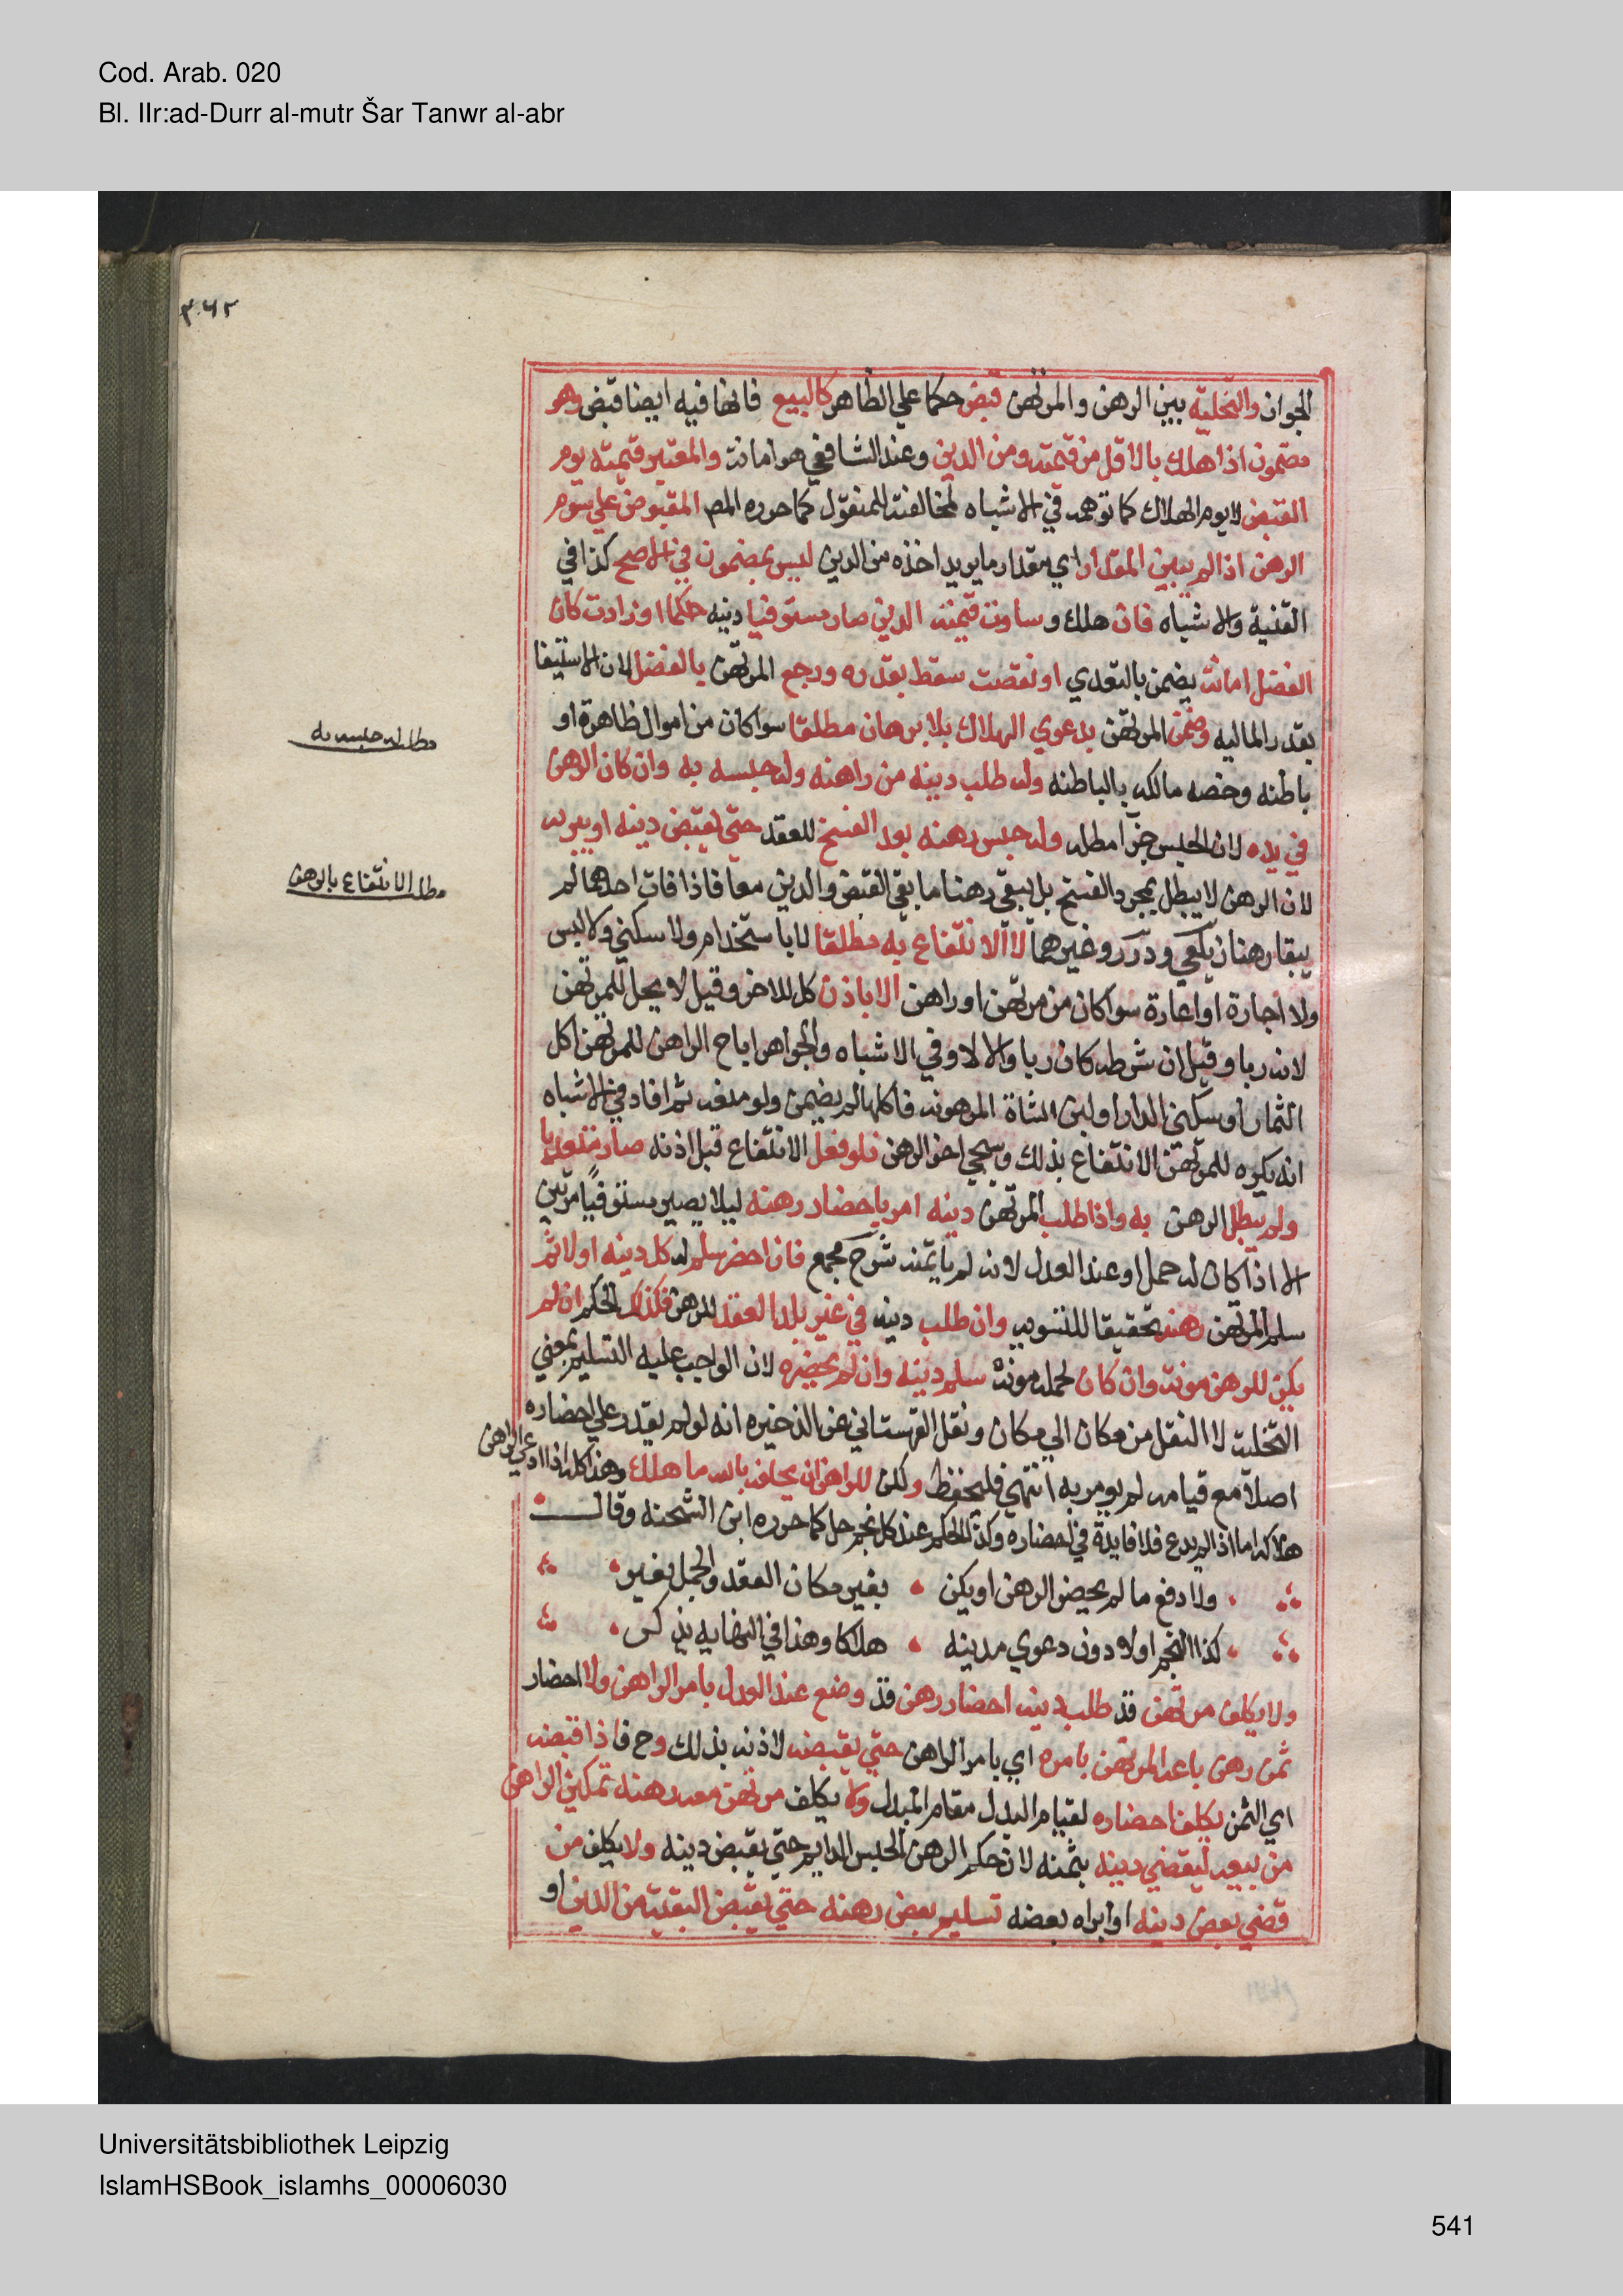 Cod. Arab. 020
Bl. IIr:ad-Durr al-mutr Šar Tanwr al-abr
٣٦٢
الجواز والتخلية بين الرهن والمرتهن قبض حكما علي الظاهر كالبيع فانها فيه ايضا قبض وهو
مضمون اذا هلك بالاقل من قيمته ومن الدين وعند الشافعي هو امانة والمعتبر قيمته يوم
القبض لا يوم الهلاك كما توهمه في الاشباه لمخالفته للمنقول كما حرره المص المقبوض علي سوم
الرهن اذا لم يبين المقدار اي مقدار ما يريد اخذه من الدين ليس بمضمون في الاصح كذا في
القنية والاشباه فان هلك وساوت قيمته الدين صار مستوفيا دينه حكما او زادت كان
الفضل امانة يضمن بالتعدي او نقصت سقط بقدره ورجع المرتهن بالفضل لان الاستيفا
بقدر الماليه وضمن المرتهن بدعوي الهلاك بلا برهان مطلقا سوا كان من اموال ظاهرة او
باطنه وخصه مالك بالباطنه وله طلب دينه من راهنه وله حبسه به وان كان الرهن
في يده لان الحبس جزآ مطله وله حبس رهنه بعد الفسخ للعقد حتي يقبض دينه او يبريه
لان الرهن لا يبطل بمجرد الفسخ بل يبقي رهنا ما بقي القبض والدين معا فاذا فات احدهما لم
يبقا رهنا زيلعي ودرر وغيرهما لا الانتفاع به مطلقا لا باستخدام ولا سكني ولا لبس
ولا اجارة او اعارة سوا كان من مرتهن او راهن الا باذن كل للاخر وقيل لا يحل للمرتهن
لانه ربا وقيل ان شرطه كان ربا والا لا وفي الاشباه والجواهر اباح الراهن للمرتهن اكل
الثمار او سكني الدار او لبن الشاة المرهونه فاكلها لم يضمن ولو منعه ثم افاد في الاشباه
انه يكره للمرتهن الانتفاع بذلك وسيجي اخر الرهن فلو فعل الانتفاع قبل اذنه صار متعديا
ولم يبطل الرهن به واذا طلب المرتهن دينه امر باحضار رهنه ليلا يصير مستوفيا مرتين
الا اذا كان له حمل او عند العدل لانه لم ياتمنه شرح مجمع فان احضر سلم له كل دينه اولا ثم
سلم المرتهن رهنه تحقيقا للتسويه وان طلب دينه في غير بلد العقد للرهن فكذلك الحكم ان لم
يكن للرهن مونة وان كان لحمله مونة سلم دينه وان لم يحضره لان الواجب عليه التسليم بمعني
التخلية لا النقل من مكان الي مكان ونقل القهستاني عن الذخيره انه لو لم يقدر علي احضاره
اصلا مع قيامه لم يومر به انتهي فليحفظ ولكن للراهن ان يحلفه بالله ما هلك وهذا كله اذا ادعي الراهن
هلاكه اما اذا لم يدع فلا فايدة في احضاره وكذا الحكم عند كل نجم حل كما حرره ابن الشحنه وقال
ولا دفع ما لم يحضر الرهن او يكن بغير مكان العقد والحمل يغير
كذا النجم اولا دون دعوي مدينه هلاكا وهذا في النهايه يذكر
ولا يكلف مرتهن قد طلب دينه احضار رهن قد وضع عند العدل بامر الراهن ولا احضار
ثمن رهن باعه المرتهن بامره اي بامر الراهن حتي يقبضه لاذنه بذلك وح فاذا قبضه
اي الثمن يكلف احضاره لقيام البدل مقام المبدل ولا يكلف مرتهن معه رهنه تمكين الراهن
من بيعه ليقضي دينه بثمنه لان حكم الرهن الحبس الدايم حتي يقبض دينه ولا يكلف من
قضي بعض دينه او ابراه بعضه تسليم بعض رهنه حتي يقبض البقية من الدين او
مطلب له حبسه به
مطلب الانتفاع بالرهن
Universitätsbibliothek Leipzig
IslamHSBook_islamhs_00006030
541